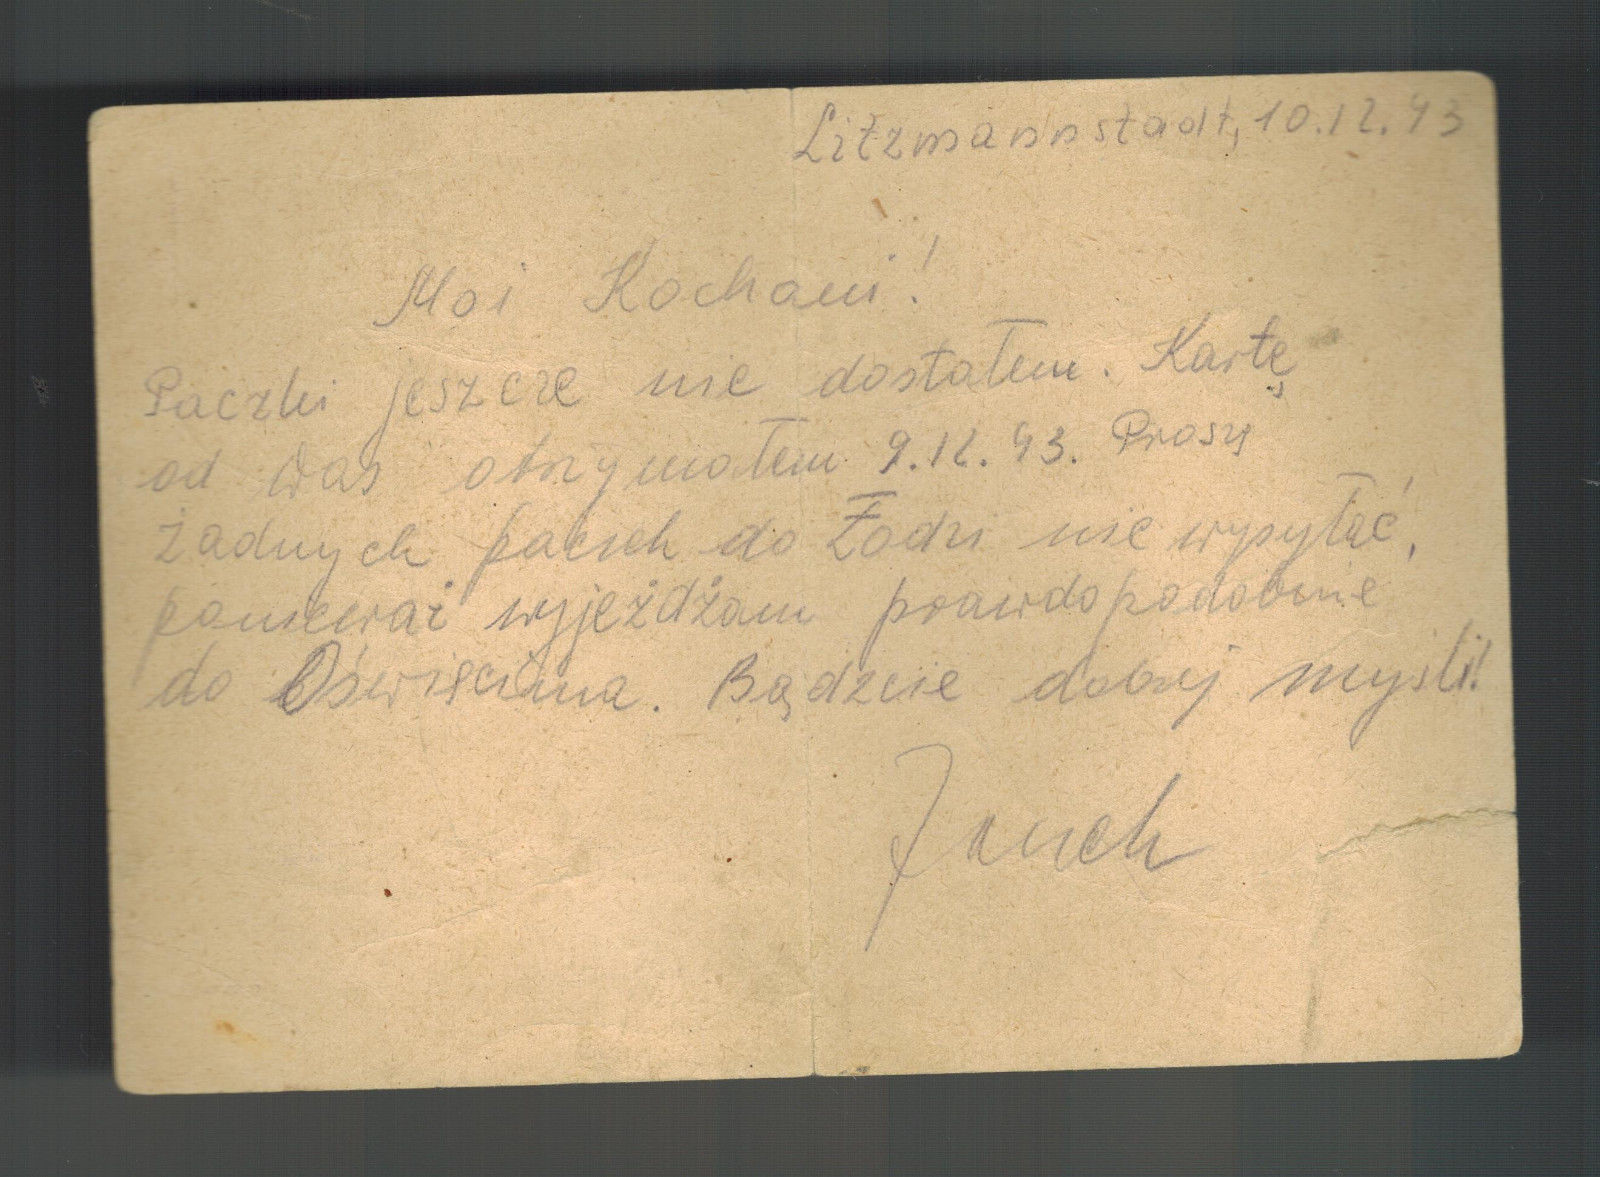 Litzmannstadt, 10.12.43
Moi Kochani!
Paczki jeszcze nie dostałem. Kartę
od Was otrzymałem 9.12.43. Proszę
żadnych paczek do Łodzi nie wysyłać,
ponieważ wyjeżdżam prawdopodobnie
do Oświęcima. Bądźcie dobrej myśli!